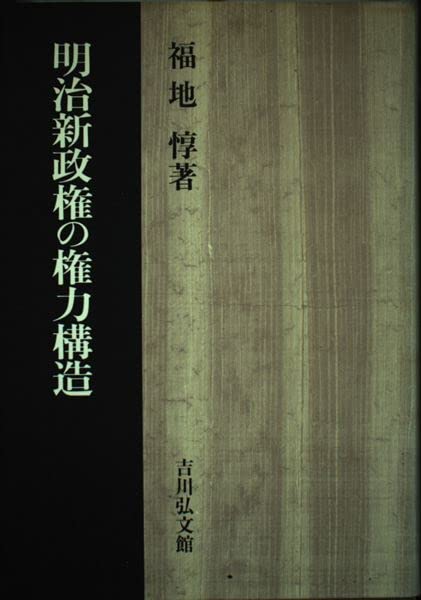 明治新政権の権力構造
福地惇著
吉川弘文館